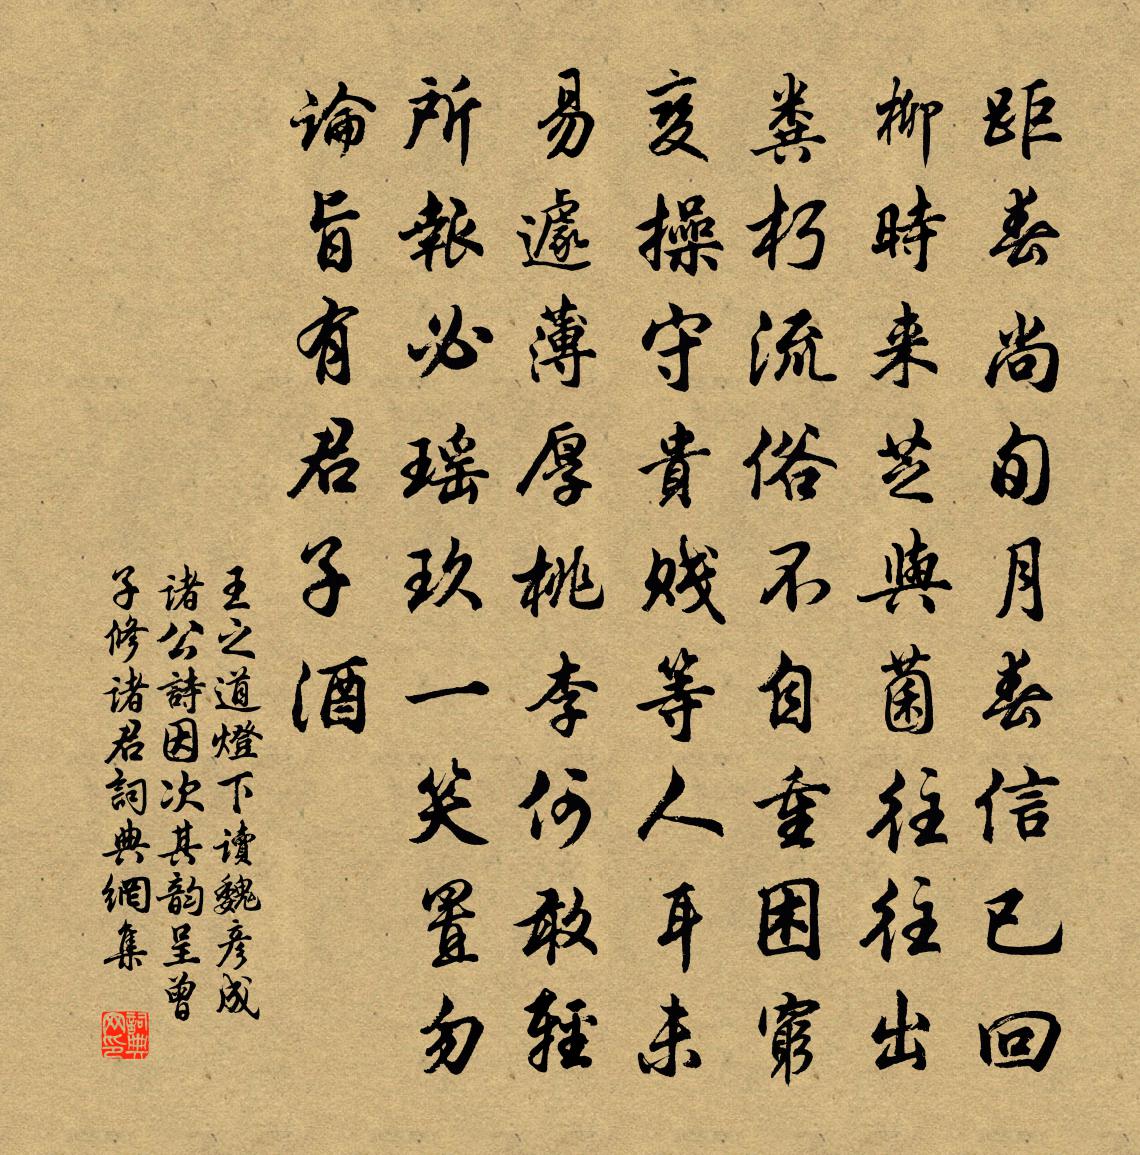 距春尚旬月春信已回
柳時来芝與菌往往出
粪朽流俗不自重困窮
变操守貴賤等人耳未
易遽薄厚桃李何敢輕
所報必瑶玖一笑置勿
論旨有君子酒
王之道燈下讀魏彦成
诸公詩因次其韵呈曾
子修诸君詞典網集
詞典
网印